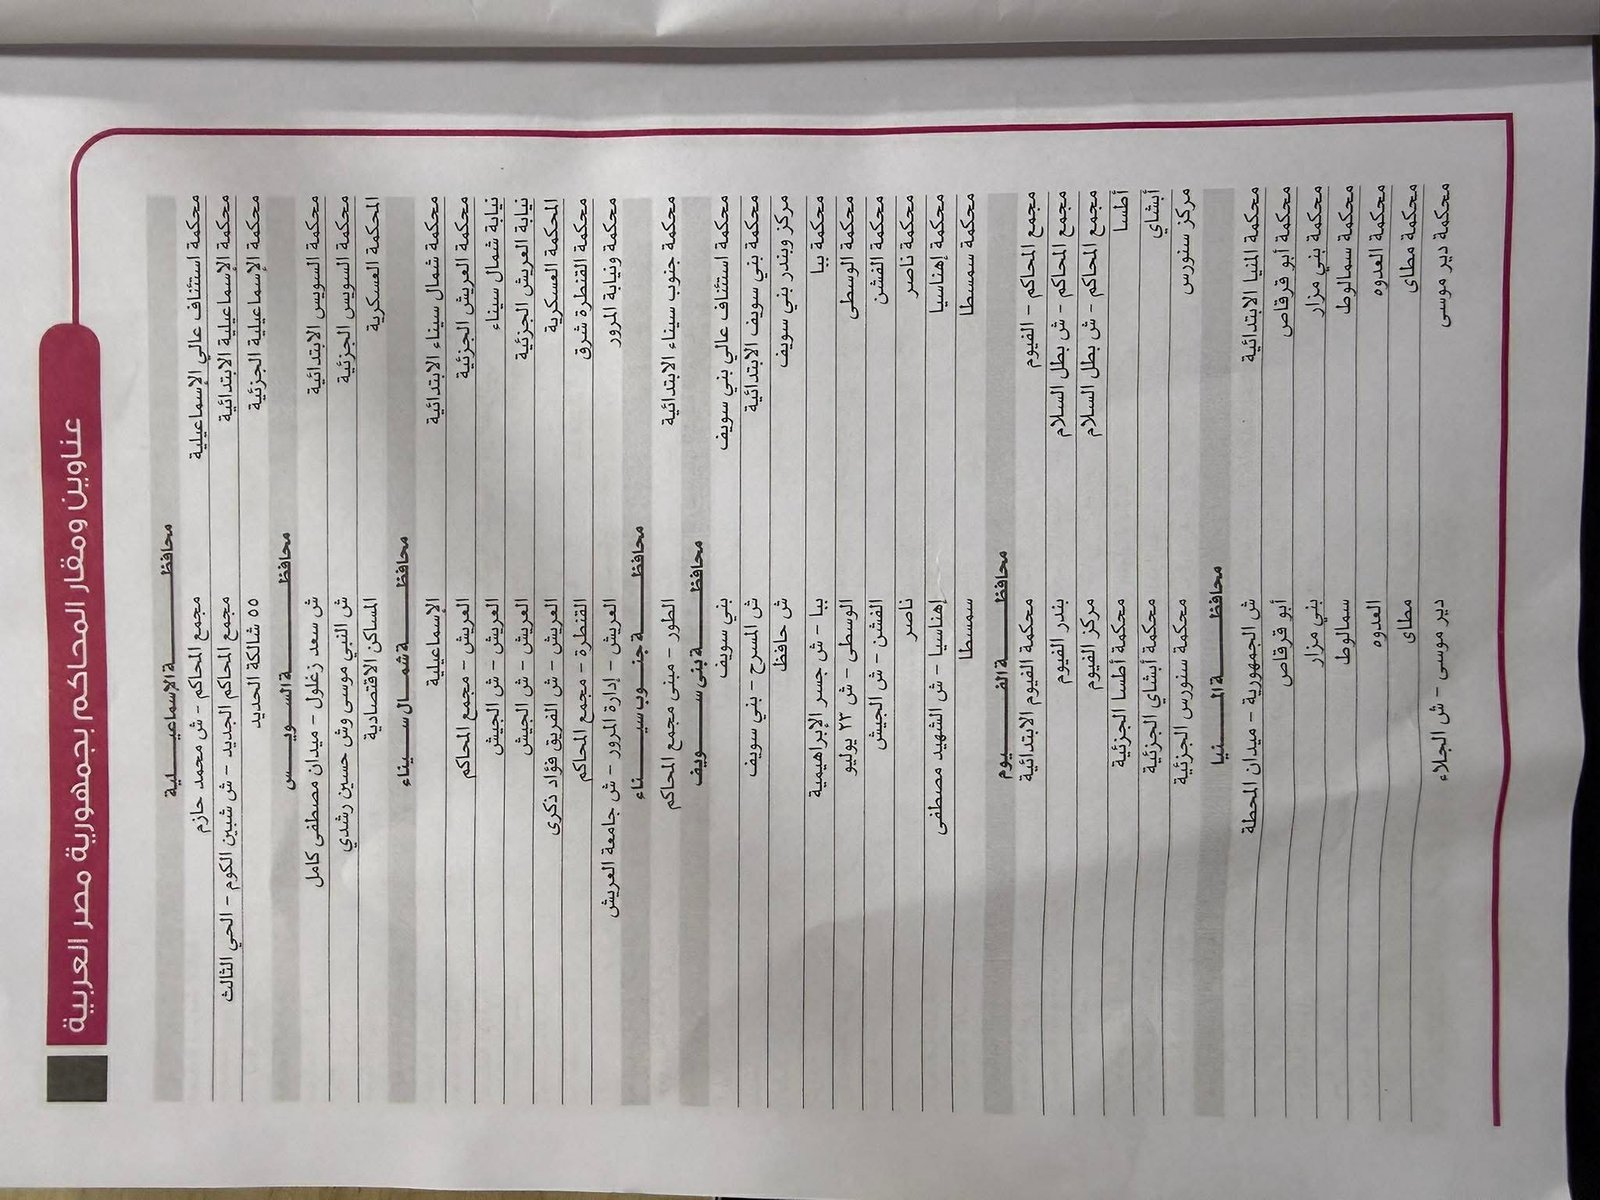 عناوين ومقار المحاكم بجمهورية مصر العربية
محافظـــة الإسماعيـــلية
محكمة استئناف عالي الإسماعيلية مجمع المحاكم - ش محمد حازم
محكمة الإسماعيلية الابتدائية مجمع المحاكم الجديد - ش شبين الكوم - الحي الثالث
محكمة الإسماعيلية الجزئية ٥٥ شالكة الحديد
محافظـــة السويـــس
محكمة السويس الابتدائية ش سعد زغلول - ميدان مصطفى كامل
محكمة السويس الجزئية ش النبي موسى وش حسين رشدي
المحكمة العسكرية المساكن الاقتصادية
محافظـــة شمـــال سيـــناء
محكمة شمال سيناء الابتدائية الإسماعيلية
محكمة العريش الجزئية العريش - مجمع المحاكم
نيابة شمال سيناء العريش - ش الجيش
نيابة العريش الجزئية العريش - ش الجيش
المحكمة العسكرية العريش - ش الفريق فؤاد ذكرى
محكمة القنطرة شرق القنطرة - مجمع المحاكم
محكمة ونيابة المرور العريش - إدارة المرور - ش جامعة العريش
محافظـــة جنـــوب سيـــناء
محكمة جنوب سيناء الابتدائية الطور - مبنى مجمع المحاكم
محافظـــة بنى ســـويف
محكمة استئناف عالي بني سويف بني سويف
محكمة بني سويف الابتدائية ش المسرح - بني سويف
مركز وبندر بني سويف ش حافظ
محكمة ببا ببا - ش جسر الإبراهيمية
محكمة الوسطى الوسطى - ش ٢٣ يوليو
محكمة الفشن الفشن - ش الجيش
محكمة ناصر ناصر
محكمة إهناسيا إهناسيا - ش الشهيد مصطفى
محكمة سمسطا سمسطا
محافظـــة الفـــيوم
مجمع المحاكم - الفيوم محكمة الفيوم الابتدائية
مجمع المحاكم - ش بطل السلام بندر الفيوم
مجمع المحاكم - ش بطل السلام مركز الفيوم
أطسا محكمة أطسا الجزئية
أبشاي محكمة أبشاي الجزئية
مركز سنورس محكمة سنورس الجزئية
محافظـــة المـــنيا
محكمة المنيا الابتدائية ش الجمهورية - ميدان المحطة
محكمة أبو قرقاص أبو قرقاص
محكمة بني مزار بني مزار
محكمة سمالوط سمالوط
محكمة العدوه العدوه
محكمة مطاى مطاى
محكمة دير موسى دير موسى - ش الجلاء